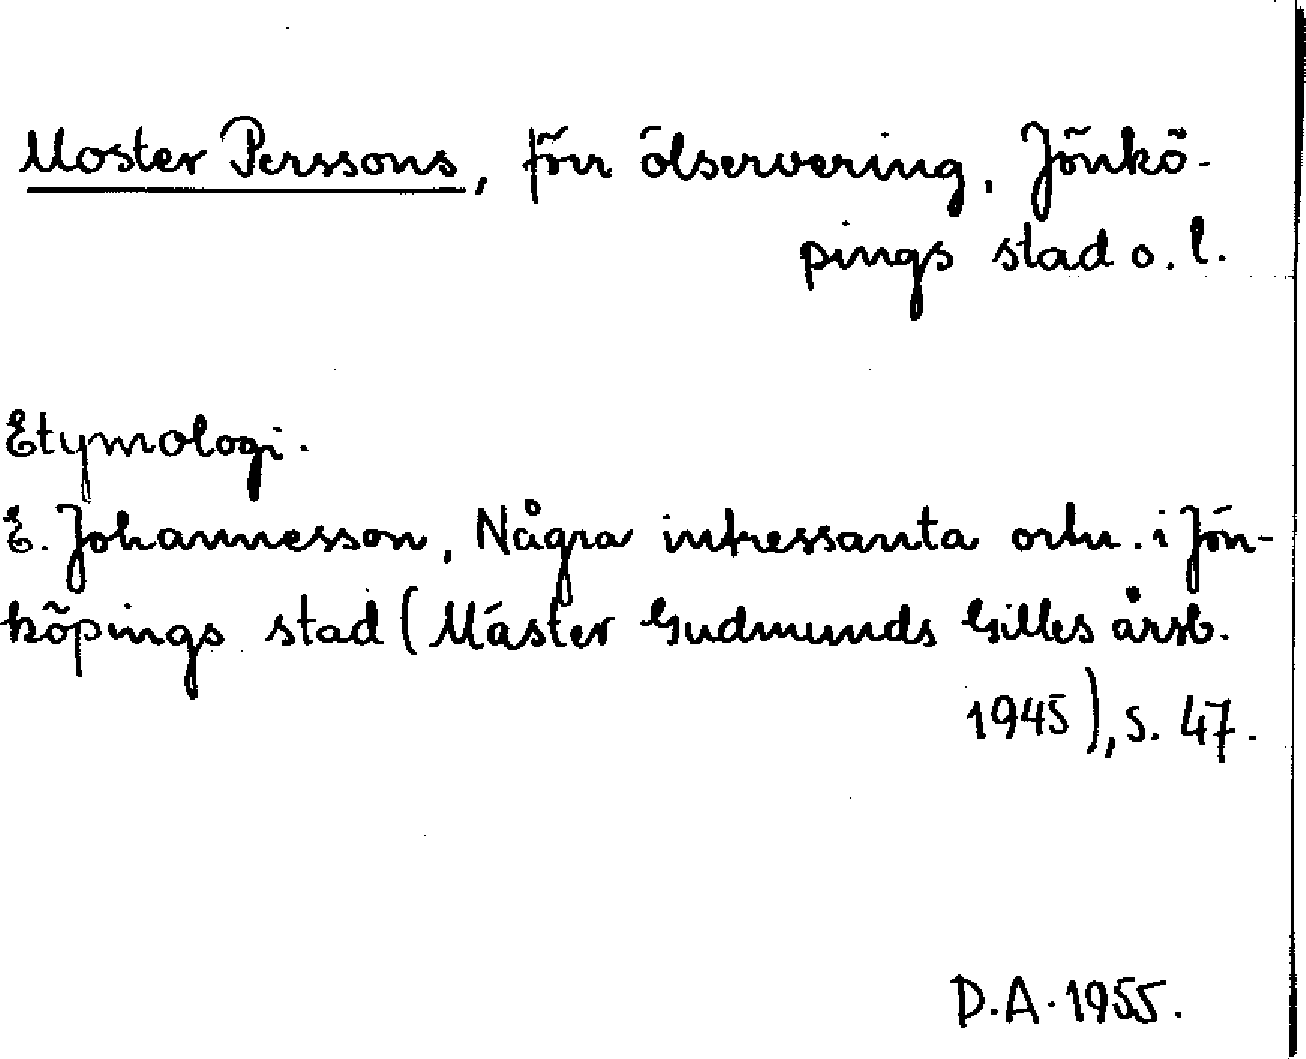 Moster Perssons, förr ölservering, Jönkö-
pings stad o. l.
Etymologi.
E. Johannesson, Några intressanta ortn. i Jön-
köpings stad (Mäster Gudmunds Gilles årsb.
1945), s. 47.
D.A. 1955.